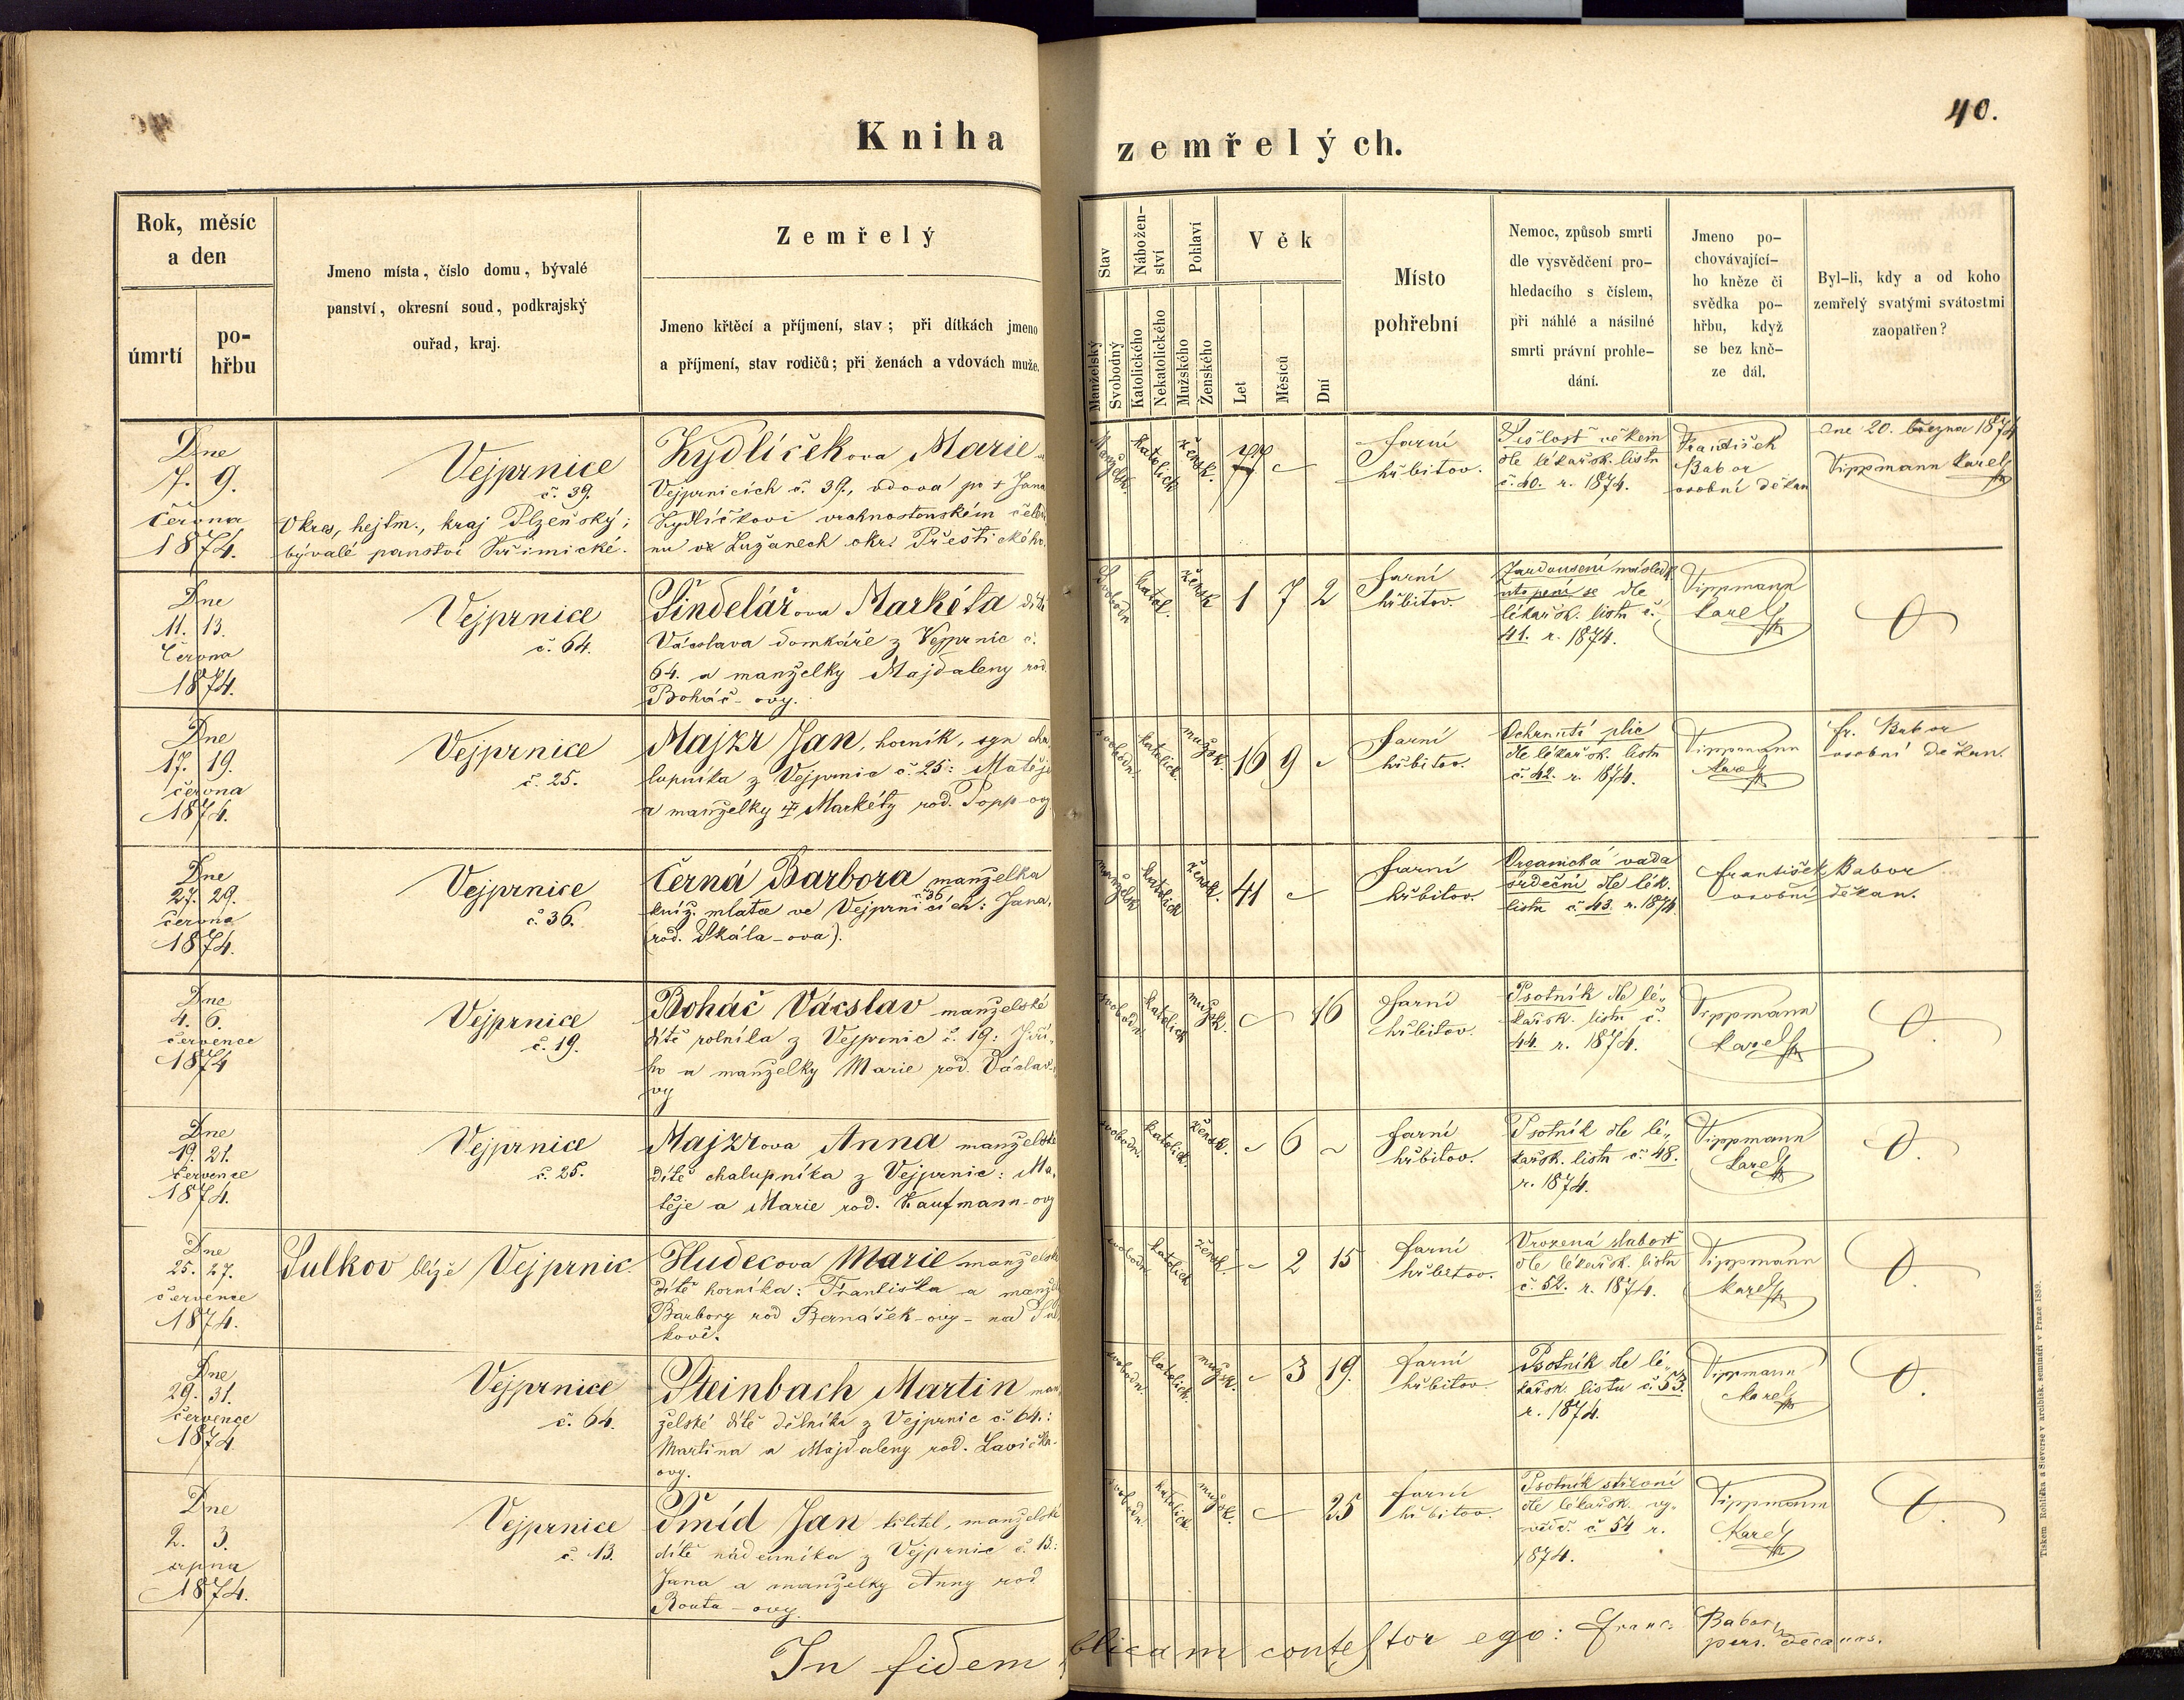 40.
Kniha zemřelých.
Rok, měsíc
a den
úmrtí
po-
hřbu
Jmeno místa, číslo domu, bývalé
panství, okresní soud, podkrajský
ouřad, kraj.
Zemřelý
Jmeno křtěcí a příjmení, stav; při dítkách jmeno
a příjmení, stav rodičů; při ženách a vdovách muže.
Stav
Manželský
Svobodný
Nábožen-
ství
Katolického
Nekatolického
Pohlaví
Mužského
Ženského
Věk
Let
Měsíců
Dní
Místo
pohřební
Nemoc, způsob smrti
dle vysvědčení pro-
hledacího s číslem,
při náhlé a násilné
smrti právní prohle-
dání.
Jmeno po-
chovávající-
ho kněze či
svědka po-
hřbu, když
se bez kně-
ze dál.
Byl-li, kdy a od koho
zemřelý svatými svátostmi
zaopatřen?
Dne
7. 9.
června
1874.
Vejprnice
č. 39.
Okres, hejtm., kraj Plzeňský;
bývalé panství Křimické.
Kydlíčekova Marie
Vejprnicích č. 39., vdova po + Jana
Kydlíčkovi vrchnostenském
nu Lužanech okr. Přeštického.
Manželsk.
katolich
žensk.
77
farní
hřbitov.
Sešlost věkem
dle lékařsk. listu
č. 40. r. 1874.
František
Babor
osobní děkan
dne 20. března 1874
Vippmann Karel
Dne
11. 13.
června
1874.
Vejprnice
č. 64.
Šindelářova Markéta dítě
Vácslava domkáře z Vejprnic č.
64. a manželky Majdaleny rod.
Boháč-ovy.
svobodn
katol.
žensk
1 7 2
farní
hřbitov.
Zardousení násled.
utopení se dle
lékařsk. listu č.
41. r. 1874.
Vippmann
Karel
Dne
17. 19.
června
1874.
Vejprnice
č. 25.
Majzr Jan, horník, syn cha
lupníka z Vejprnic č. 25: Matěje
a manželky + Markéty rod. Popp-ovy
svobodn.
katolick.
mužsk.
16 9
farní
hřbitov.
Ochrnutí plic
dle lékařsk. listu
č. 42. r. 1874.
Vippmann
Karel
fr. Babor
osobní děkan.
Dne
27. 29.
června
1874.
Vejprnice
č. 36.
Černá Barbora manželka
kníž. mlatce ve Vejprnicích č. 36: Jana,
(rod. Skála-ova).
manželsk
katolick
žensk.
41
farní
hřbitov.
Organická vada
srdeční dle lék.
listu č. 43. r. 1874.
František Babor
osobní děkan.
Dne
4. 6.
července
1874
Vejprnice
č. 19.
Boháč Vácslav manželské
dítě rolníka z Vejprnic č. 19: Jiří-
ho a manželky Marie rod. Váslav-
ovy
svobodn.
katolick
mužsk.
16
farní
hřbitov.
Psotník dle lé-
kařsk. listu č.
44. r. 1874.
Vippmann
Karel
Dne
19. 21.
července
1874.
Vejprnice
č. 25.
Majzrova Anna manželské
dítě chalupníka z Vejprnic: Ma-
těje a Marie rod. Kaufmann-ovy
svobodn.
katolick.
žensk.
6
farní
hřbitov.
Psotník dle lé-
kařsk. listu č. 48.
r. 1874.
Vippmann
Karel
Dne
25. 27.
července
1874.
Sulkov blíže Vejprnic
Hudecova Marie manželské
dítě horníka: Františka a manžel
Barbory rod Bernášek-ovy - na Sul
kově.
svobodn
katolick
žensk.
2 15
farní
hřbitov.
Vrozená slabost
dle lékařsk. listu
č. 52. r. 1874.
Vippmann
Karel
Dne
29. 31.
července
1874.
Vejprnice
č. 64.
Steinbach Martin man
želské dítě dělníka z Vejprnic č. 64.:
Martina a Majdaleny rod. Lavička-
ovy.
svobodn.
katolick.
mužsk.
3 19.
farní
hřbitov.
Psotník dle lé-
kařsk. listu č. 53.
r. 1874.
Vippmann
Karel
Dne
2. 3.
srpna
1874.
Vejprnice
č. 13.
Šmíd Jan křtitel, manželské
dítě nádenníka z Vejprnic č. 13:
Jana a manželky Anny rod
Routa-ovy.
svobodn.
katolick.
mužsk.
25
farní
hřbitov.
Psotník střevní
dle lékařsk. vy-
svěd. č. 54 r.
1874.
Vippmann
Karel
In fidem blicam contestor ego: Franc. Babor,
pers. decanus.
Tiskem Rohlíčka a Sieverse v arcibisk. semináři v Praze 1859.